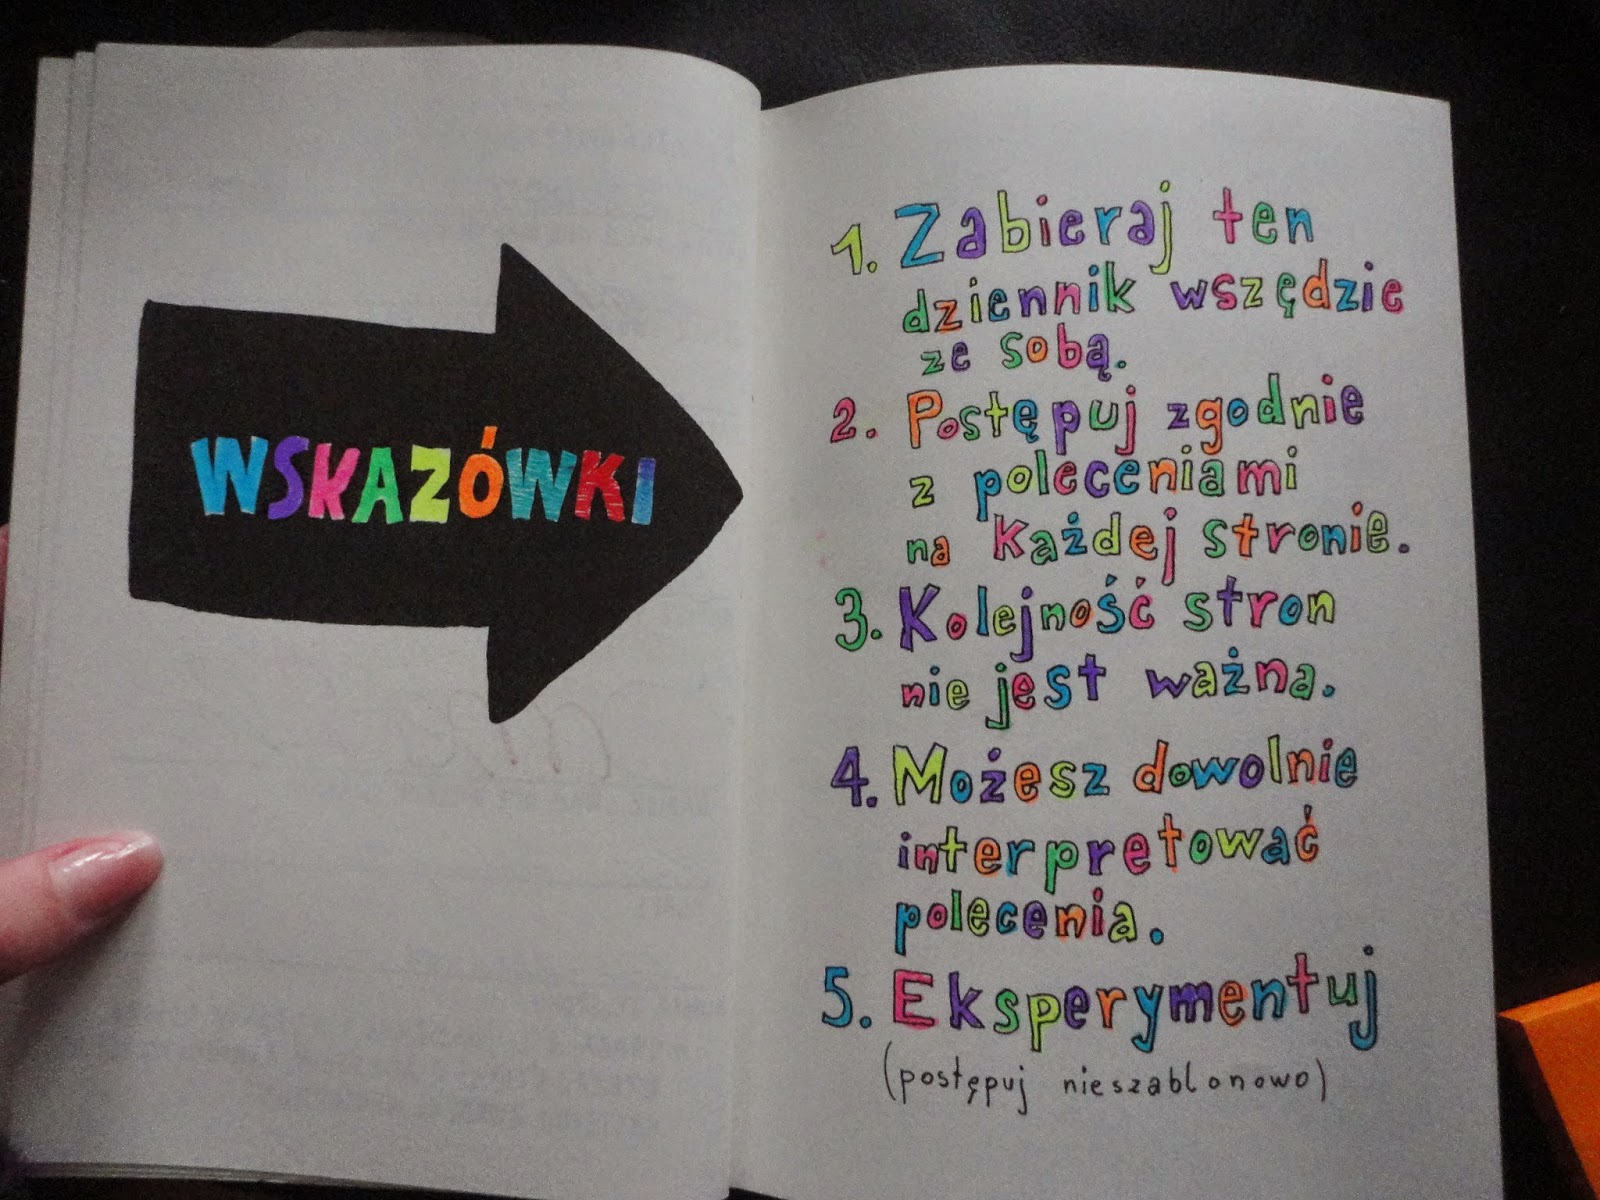 WSKAZÓWKI
1. Zabieraj ten
dziennik wszędzie
ze sobą.
2. Postępuj zgodnie
z poleceniami
na każdej stronie.
3. Kolejność stron
nie jest ważna.
4. Możesz dowolnie
interpretować
polecenia.
5. Eksperymentuj
(postępuj nieszablonowo)